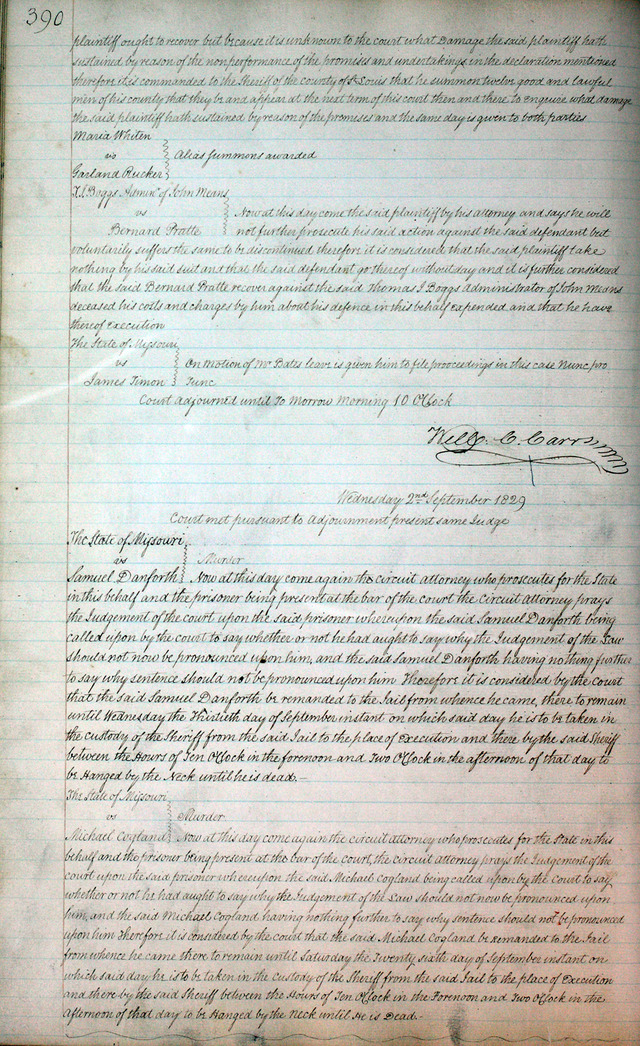 390
plaintiff ought to recover but because it is unknown to the court what Damage the said plaintiff hath
sustained by reason of the nonperformance of the promises and undertakings in the declaration mentioned
therefore it is commanded to the Sheriff of the county of St Louis that he summon twelve good and lawful
men of his county that they be and appear at the next term of this court then and there to enquire what damage
the said plaintiff hath sustained by reason of the promises and the same day is given to both parties
Maria Whiten
vs Alias Summons awarded
Garland Rucker
T. J. Boggs Admin.r of John Means
vs Now at this day come the said plaintiff by his attorney and says he will
Bernard Pratte not further prosecute his said action against the said defendant but
voluntarily suffers the same to be discontinued therefore it is considered that the said plaintiff take
nothing by his said suit and that the said defendant go thereof without day and it is further considered
that the said Bernard Pratte recover against the said Thomas J Boggs Administrator of John Means
deceased his costs and charges by him about his defence in this behalf expended and that he have
thereof Execution
The State of Missouri
vs On motion of Mr Bates leave is given him to file proceedings in this case Nunc pro
James Timon Tunc
Court Adjourned until To Morrow Morning 10 OClock
Will. C. Carr
Wednesday 2nd September 1829
Court met pursuant to Adjournment present same Judge
The State of Missouri
vs Murder
Samuel Danforth Now at this day come again the circuit attorney who prosecutes for the State
in this behalf and the prisoner being present at the bar of the court the circuit Attorney prays
the Judgement of the court upon the said prisoner whereupon the said Samuel Danforth being
called upon by the court to say whether or not he had aught to say why the Judgement of the Law
should not now be pronounced upon him, and the said Samuel Danforth having nothing further
to say why sentence should not be pronounced upon him Therefore it is considered by the court
that the said Samuel Danforth be remanded to the Jail from whence he came, there to remain
until Wednesday the Thirtieth day of September instant on which said day he is to be taken in
the custody of the Sheriff from the said Jail to the place of Execution and there by the said Sheriff
between the Hours of Ten OClock in the forenoon and Two OClock in the afternoon of that day to
be Hanged by the Neck until he is dead.-
The State of Missouri
vs Murder.
Michael Cogland Now at this day come again the circuit attorney who prosecutes for the State in this
behalf and the prisoner being present at the bar of the court, the circuit attorney prays the Judgement of the
court upon the said prisoner whereupon the said Michael Cogland being called upon by the Court to say
whether or not he had aught to say why the Judgement of the Law should not now be pronounced upon
him, and the said Michael Cogland having nothing further to say why sentence should not be pronounced
upon him Therefore it is considered by the court that the said Michael Cogland be remanded to the Jail
from whence he came there to remain until Saturday the Twenty sixth day of September instant on
which said day he is to be taken in the custody of the Sheriff from the said Jail to the place of Execution
and there by the said Sheriff between the Hours of Ten OClock in the Forenoon and Two OClock in the
afternoon of that day to be Hanged by the Neck until He is Dead.-